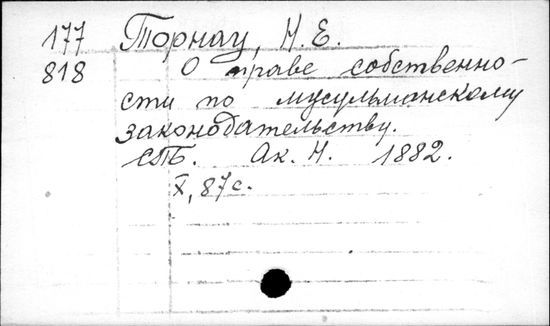 177 Торнау, Н. Е.
818 О праве собственно-
сти по мусульманскому
законодательству.
СПБ. Ак. Н. 1882.
X, 87 с.